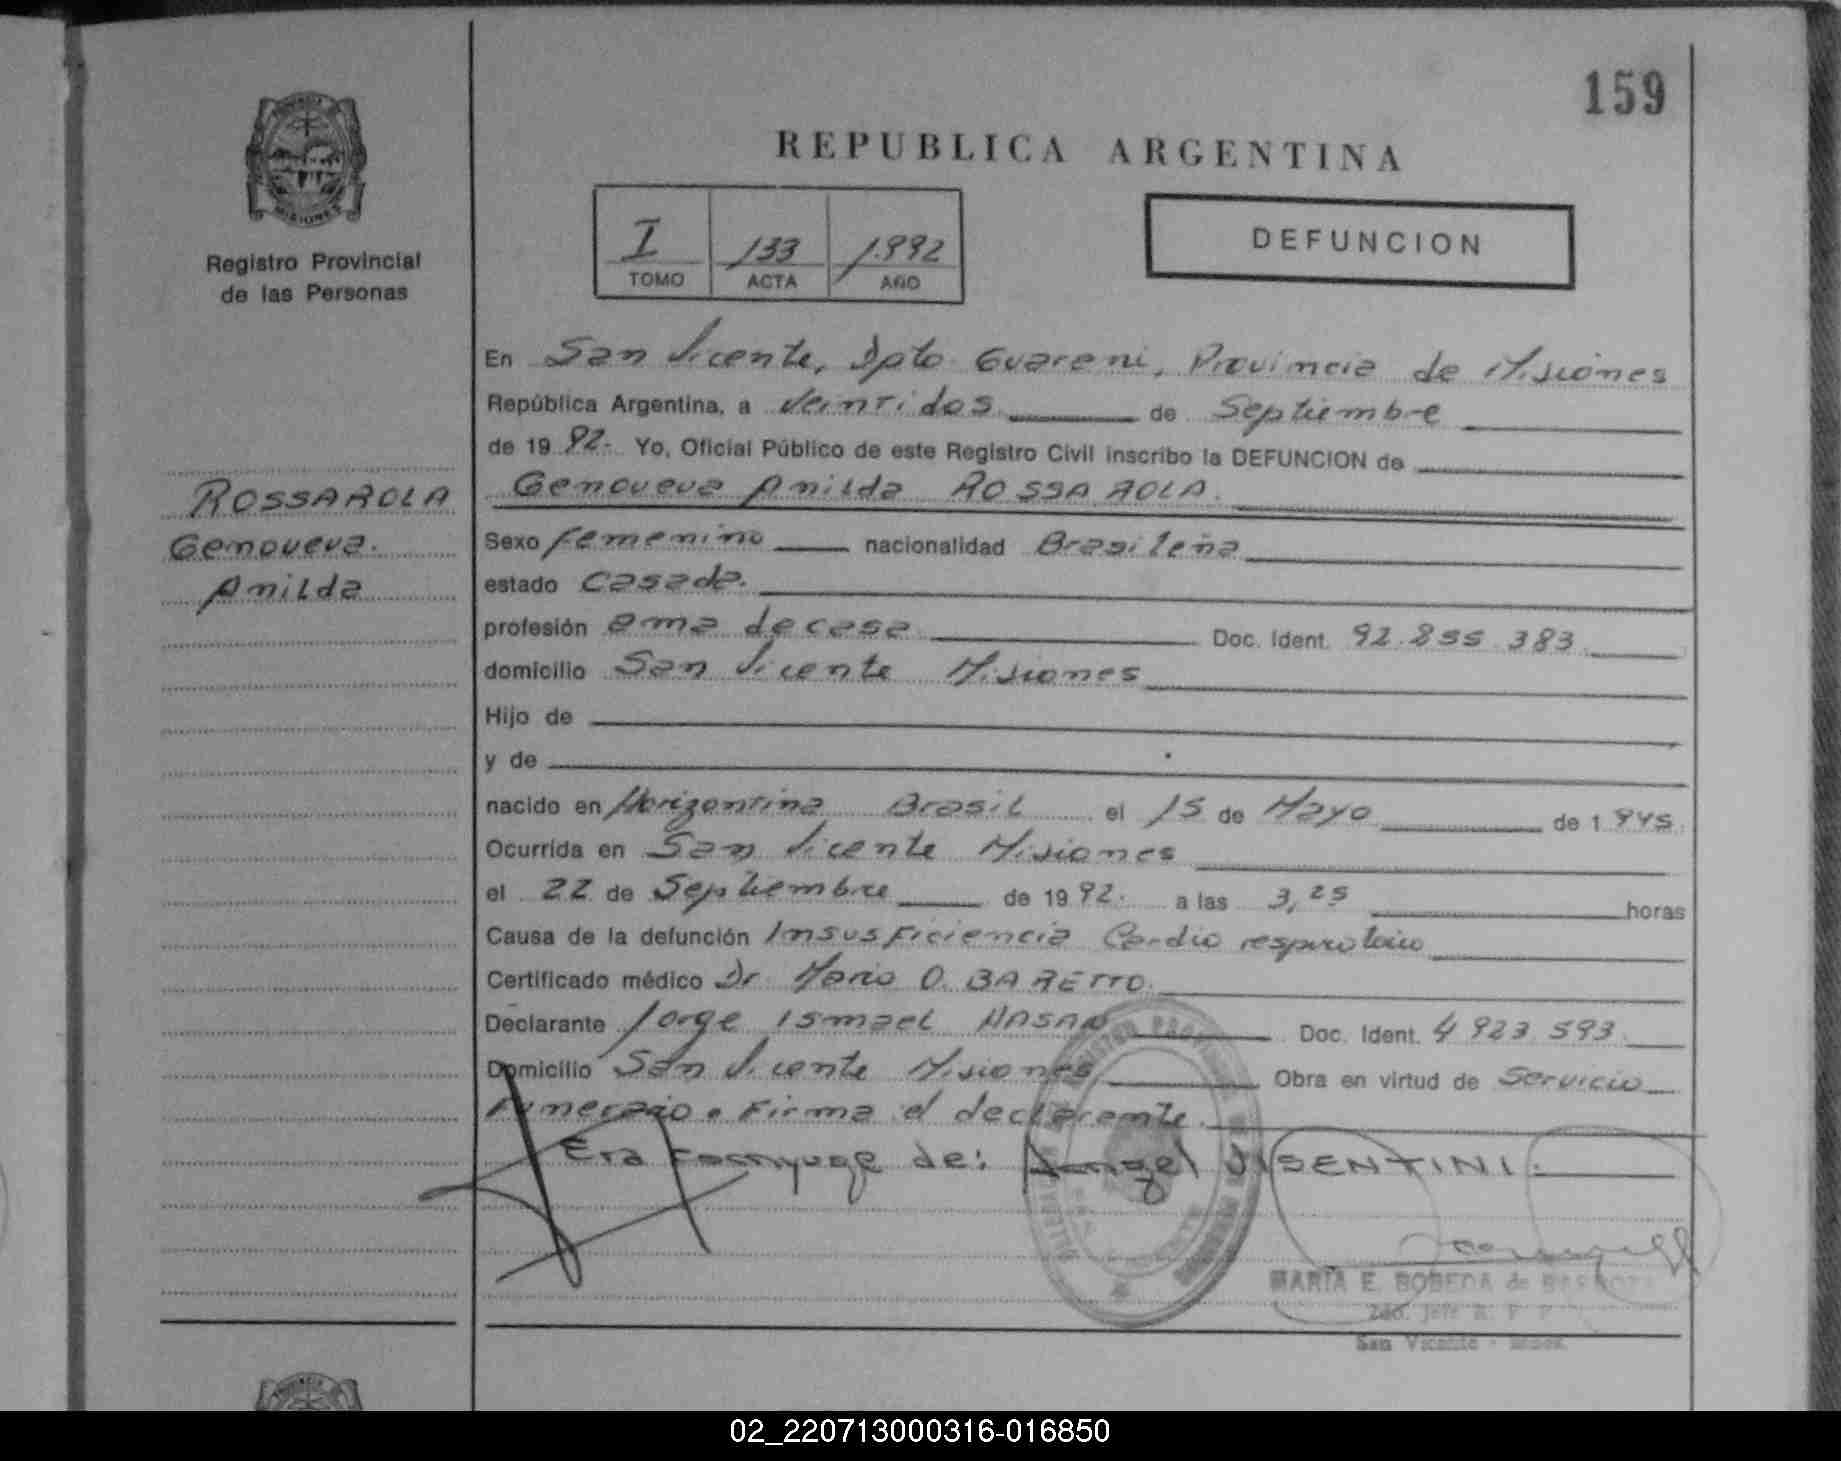 159
REPUBLICA ARGENTINA
PROVINCIA
MISIONES
Registro Provincial
de las Personas
I 133 1.992
TOMO ACTA AÑO
DEFUNCION
En San Vicente, Dpto Guarani, Provincia de Misiones
República Argentina, a Veintidos de Septiembre
de 19 92.- Yo, Oficial Público de este Registro Civil inscribo la DEFUNCION de
Genoveva Anilda ROSSAROLA.
ROSSAROLA
Genoveva.
Anilda
Sexo femenino nacionalidad Brasileña
estado Casada.
profesión ama de casa Doc. Ident. 92.855.383.
domicilio San Vicente Misiones
Hijo de
y de
nacido en Horizontina Brasil el 15 de Mayo de 1.945.
Ocurrida en San Vicente Misiones
el 22 de Septiembre de 19 92. a las 3,25 horas
Causa de la defunción Insusficiencia Cardio respiratorio
Certificado médico Dr. Mario O. BARETTO.
Declarante Jorge Ismael HASAN Doc. Ident. 4.923.593.
Domicilio San Vicente Misiones Obra en virtud de Servicio
Funerario. Firma el declarante.
Era conyuge de: Angel VISENTINI.
MARIA E. BOBEDA de BARBOZA
2do. Jefe R. P. P.
San Vicente - Mnes.
02_220713000316-016850